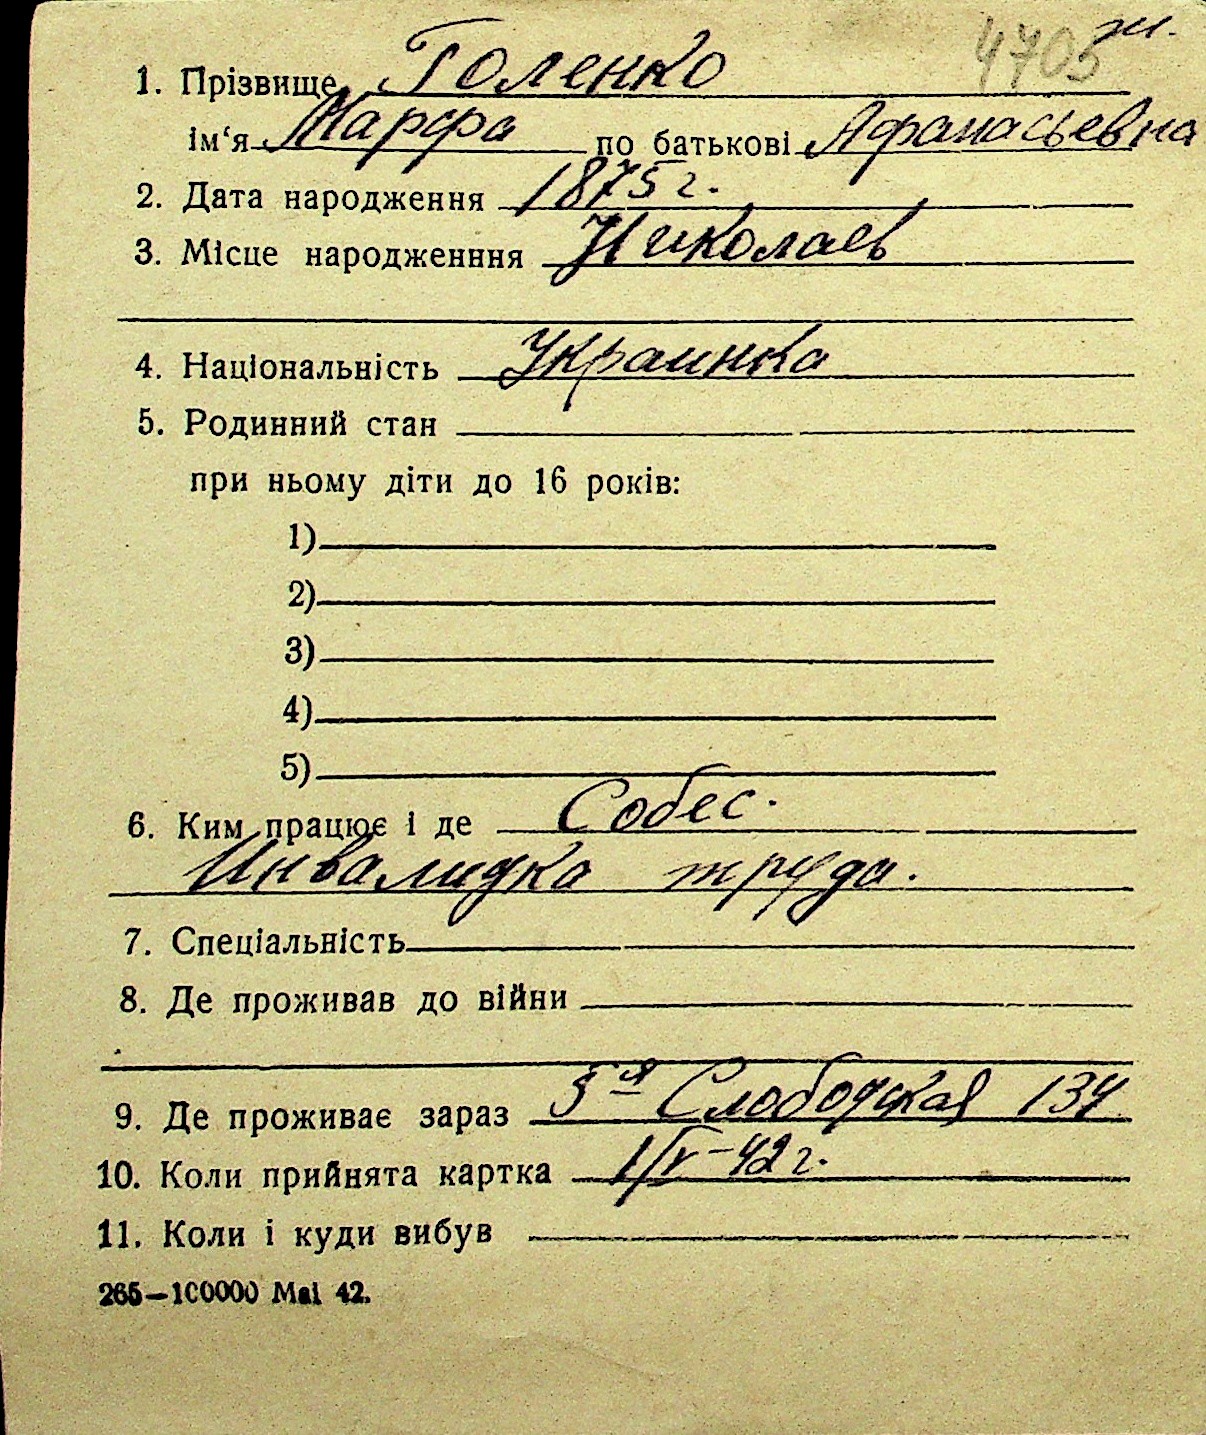 4705 ж.
1. Прізвище Голенко
ім‘я Марфа по батькові Афанасьевна
2. Дата народження 1875 г.
3. Місце народженння Николаев
4. Національність Украинка
5. Родинний стан
при ньому діти до 16 років:
1)
2)
3)
4)
5)
6. Ким працює і де Собес.
Инвалидка труда.
7. Спеціальність
8. Де проживав до війни
9. Де проживає зараз 5ая Слободская 134
10. Коли прийнята картка 1/V-42 г.
11. Коли і куди вибув
265—100000 Mai 42.